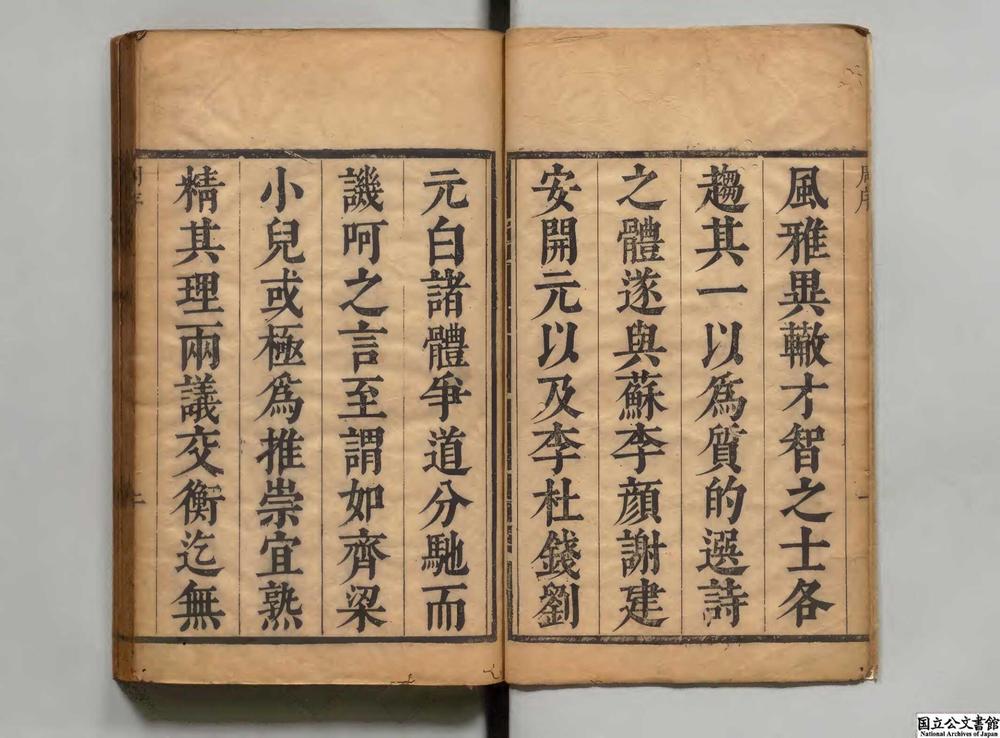 風雅異轍才智之士各
趨其一以爲質的選詩
之體遂與蘇李顏謝建
安開元以及李杜錢劉
元白諸體爭道分馳而
譏呵之言至謂如齊梁
小兒或極爲推崇宜熟
精其理兩議交衡迄無
国立公文書館
National Archives of Japan